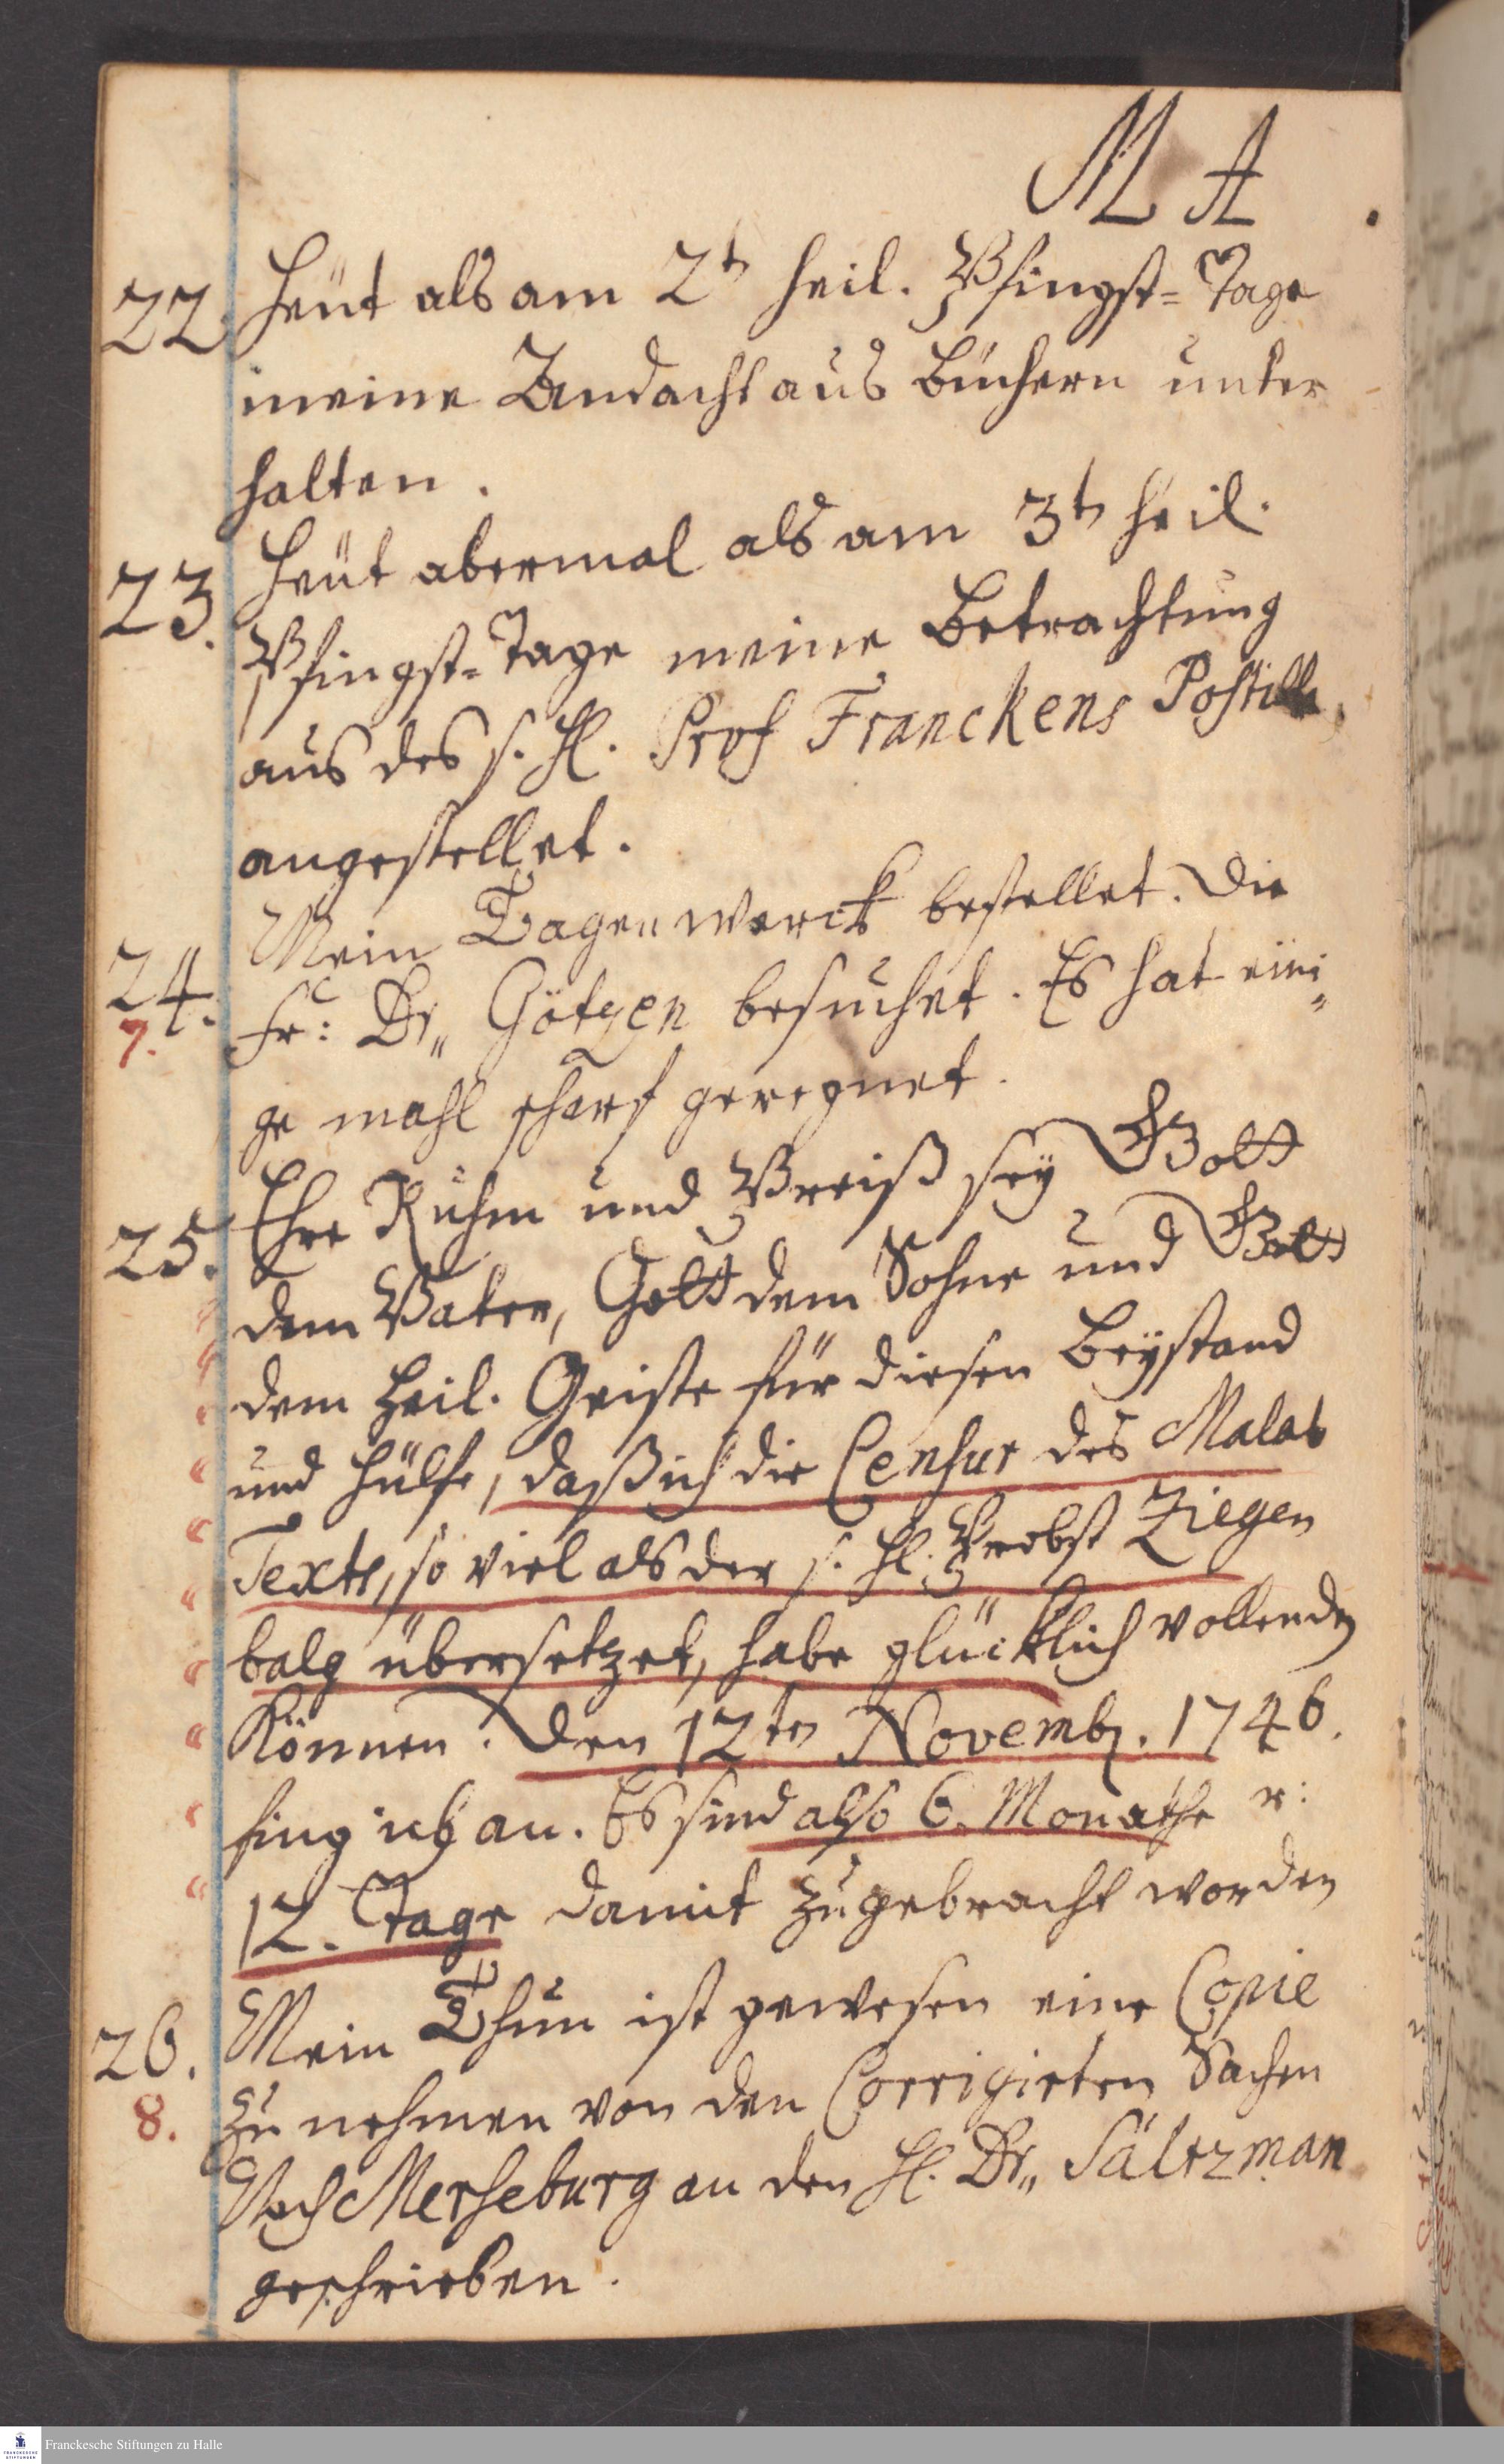 M A
22. Heüt als am 2tn heil. Pfingst= Tage
meine Andacht aus Büchern unter
halten.
23. Heüt abermal als am 3tn heil.
Pfingst= Tage meine Betrachtung
aus des s. Hl. Prof Franckens Postille
angestellet.
24. Mein Tagenwerck bestellet. Die
7. Fr: Dr„ Götzen besuchet. Es hat eini„
ge mahl scharf geregnet.
25. Ehre Ruhm und Preiß sey Gott
dem Vater, Gott dem Sohne und Gott
dem Heil. Geiste für diesen Beystand
und Hülfe, daß ich die Censur des Malab
Texts, so viel als der s. Hl. Probst Ziegen
balg übersetzet, habe glücklich vollenden
können. Den 12ten Novemb. 1746.
fing ich an. Es sind also 6. Monathe u:
12. Tage damit zugebracht worden
26. Mein Thun ist gewesen eine Copie
8. zu nehmen von den Corrigirten Sachen
Nach Merseburg an den Hl. Dr„ Sältzman
geschrieben.
FRANCKESCHE STIFTUNGEN
Franckesche Stiftungen zu Halle